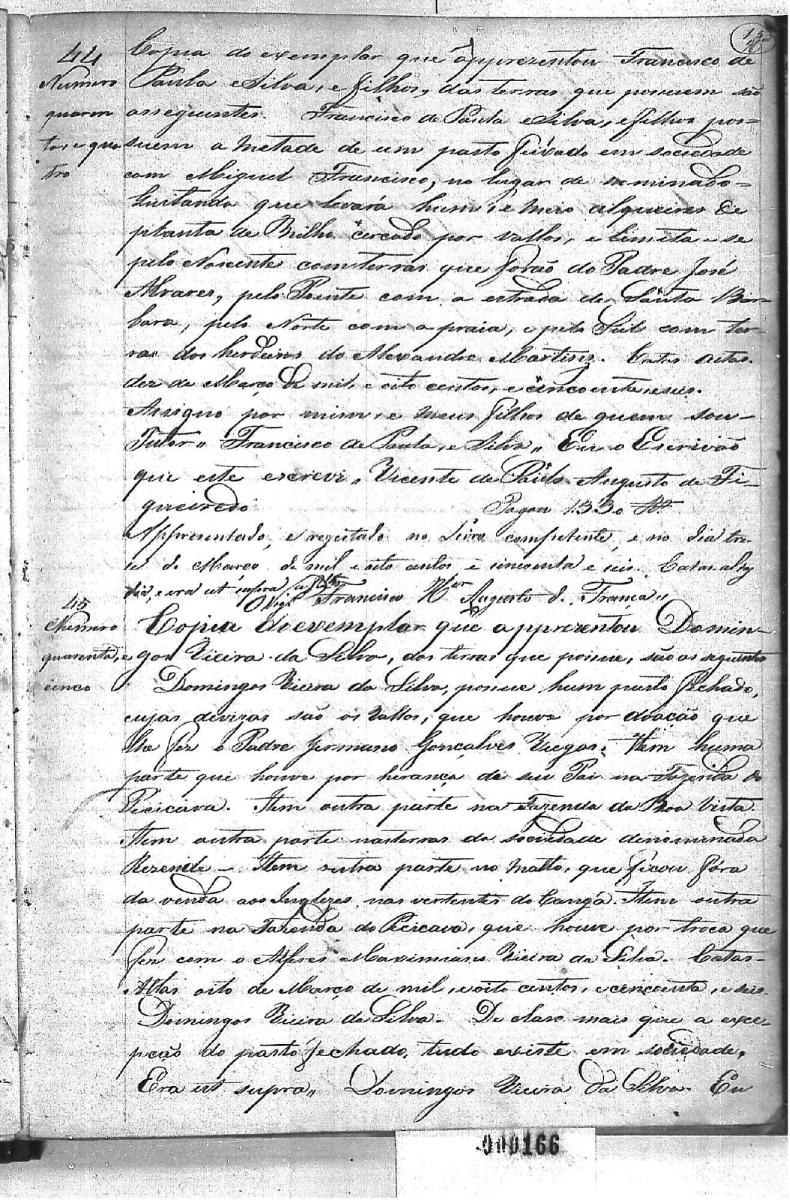 44
Numero
quaren
ta e qua
tro
Copia do exemplar que apprezentou Francisco de
Paula e Silva, e filhos, das terras que possuem são
asseguintes. Francisco de Paula e Silva, e filhos pos-
suem a metade de um pasto feixado em sociedade
com Miguel Francisco, no lugar de nominado-
que levará hum, e meio alqueires de
planta de Milho cercado por vallos, e Limita-se
pelo Nascente comterras que forão do Padre José
Alvares, pelo Poente com a estrada de Santa Bar-
bara, pelo Norte com a praia, e pelo Sul com ter-
ras dos herdeiros do Alexandre Martins. Catas Altas
dez de Março de mil, e oito centos, e cincoenta, e seis.
Assigno por mim, e meus filhos de quem sou
Tutor" Francisco de Paula, e Silva" Eu o Escrivão
que este escrevi" Vicente de Paulo Augusto de Fi-
gueiredo Pagou 1330 Rs
Appresentado, e registado no Livro competente, e no dia tre-
ze de Março de mil e oito centos e sincoenta e seis. Catas altas
dia, e era ut supra Francisco Xer Augusto de França"
45
Numero
quarenta, e
cinco
Copia do exemplar que apprezentou Domin-
gos Vieira da Silva, das terras que possue, são as seguintes
Domingos Vieira da Silva, possue hum pasto fechado,
cujas devizas são os Vallos, que houve por doação que
lhe fez o Padre Germano Gonçalves Viegas, Item huma
parte que houve por herança de seu Pai na Fazenda do
Pecicava. Item outra parte na Fazenda da Boa Vista.
Item outra parte nasterras da Sociedade denominada
Rezende - Item outra parte no Matto, que ficou fóra
da venda aos Inglezes, nas vertentes do Cangá. Item outra
parte na Fazenda do Pecicava, que houve por troca que
fez com o Alferes Maximiano Vieira da Silva. Catas-
Altas oito de Março de mil, e oito centos, e cincoenta, e seis.
Domingos Vieira da Silva. De claro mais que a exce-
pcção do pasto fechado, tudo existe em sociedade,
Era ut supra" Domingos Vieira da Silva. Eu
000166